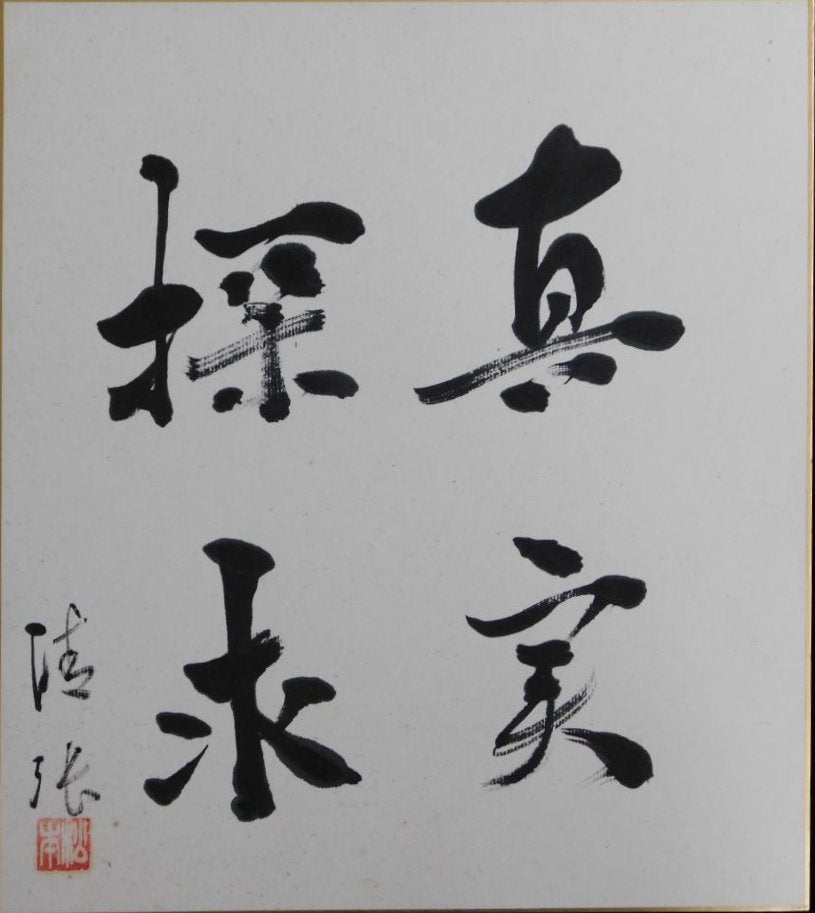 真実
探求
清張
松本